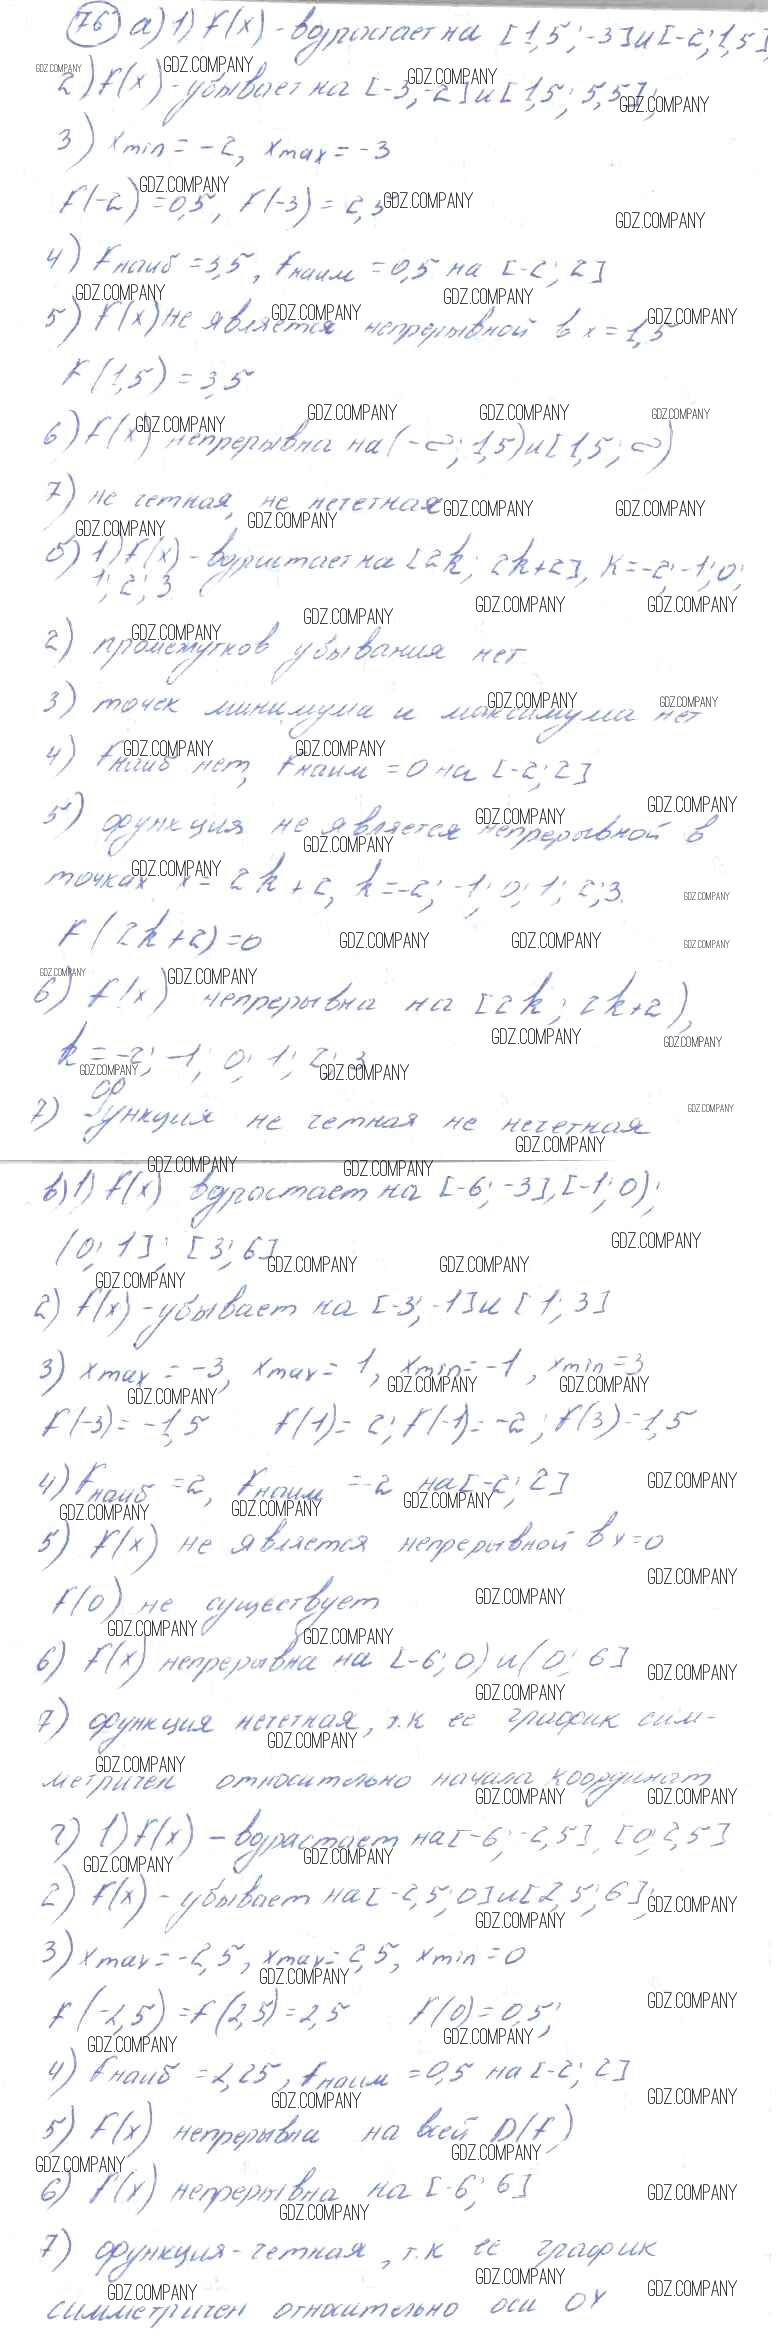 76 а) 1) f(x) - возрастает на [1,5; -3] и [-2; 1,5],
2) f(x) - убывает на [-3; -2] и [1,5; 5,5];
3) xmin = -2, xmax = -3
f(-2) = 0,5, f(-3) = 2,5
4) fнаиб = 3,5, fнаим = 0,5 на [-2; 2]
5) f(x) не является непрерывной в x = 1,5
f(1,5) = 3,5
6) f(x) непрерывна на (-∞; 1,5) и [1,5; ∞)
7) не четная, не нечетная
б) 1) f(x) - возрастает на [2k; 2k+2], k = -2; -1; 0;
1; 2; 3
2) промежутков убывания нет
3) точек минимума и максимума нет
4) fнаиб нет, fнаим = 0 на [-2; 2]
5) функция не является непрерывной в
точках x = 2k + 2, k = -2; -1; 0; 1; 2; 3.
f(2k+2) = 0
6) f(x) непрерывна на [2k; 2k+2),
k = -2; -1; 0; 1; 2; 3
7) функция не четная не нечетная
в) 1) f(x) возрастает на [-6; -3], [-1; 0);
(0; 1]; [3; 6]
2) f(x) - убывает на [-3; -1] и [1; 3]
3) xmax = -3, xmax = 1, xmin = -1, xmin = 3
f(-3) = -1,5 f(1) = 2; f(-1) = -2; f(3) = 1,5
4) fнаиб = 2, fнаим = -2 на [-2; 2]
5) f(x) не является непрерывной в x = 0
f(0) не существует
6) f(x) непрерывна на [-6; 0) и (0; 6]
7) функция нечетная, т.к ее график сим-
метричен относительно начала координат
г) 1) f(x) - возрастает на [-6; -2,5], [0; 2,5]
2) f(x) - убывает на [-2,5; 0] и [2,5; 6];
3) xmax = -2,5, xmax = 2,5, xmin = 0
f(-2,5) = f(2,5) = 2,5 f(0) = 0,5;
4) fнаиб = 2,25, fнаим = 0,5 на [-2; 2]
5) f(x) непрерывна на всей D(f)
6) f(x) непрерывна на [-6; 6]
7) функция - четная, т.к ее график
симметричен относительно оси OY